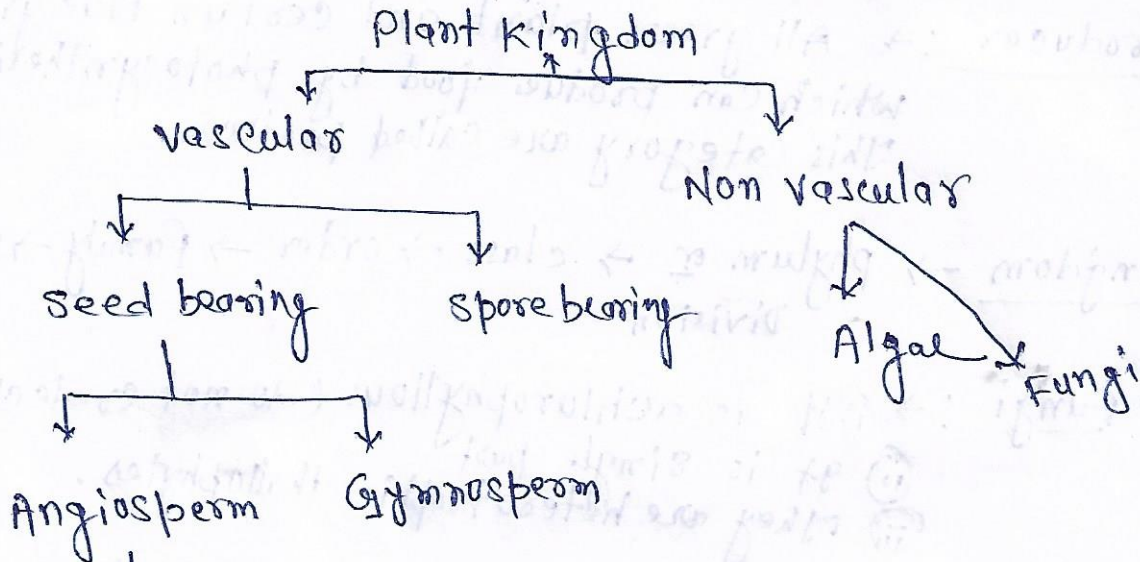 Plant Kingdom
vascular
Non vascular
seed bearing
spore bearing
Algae
Fungi
Angiosperm
Gymnosperm